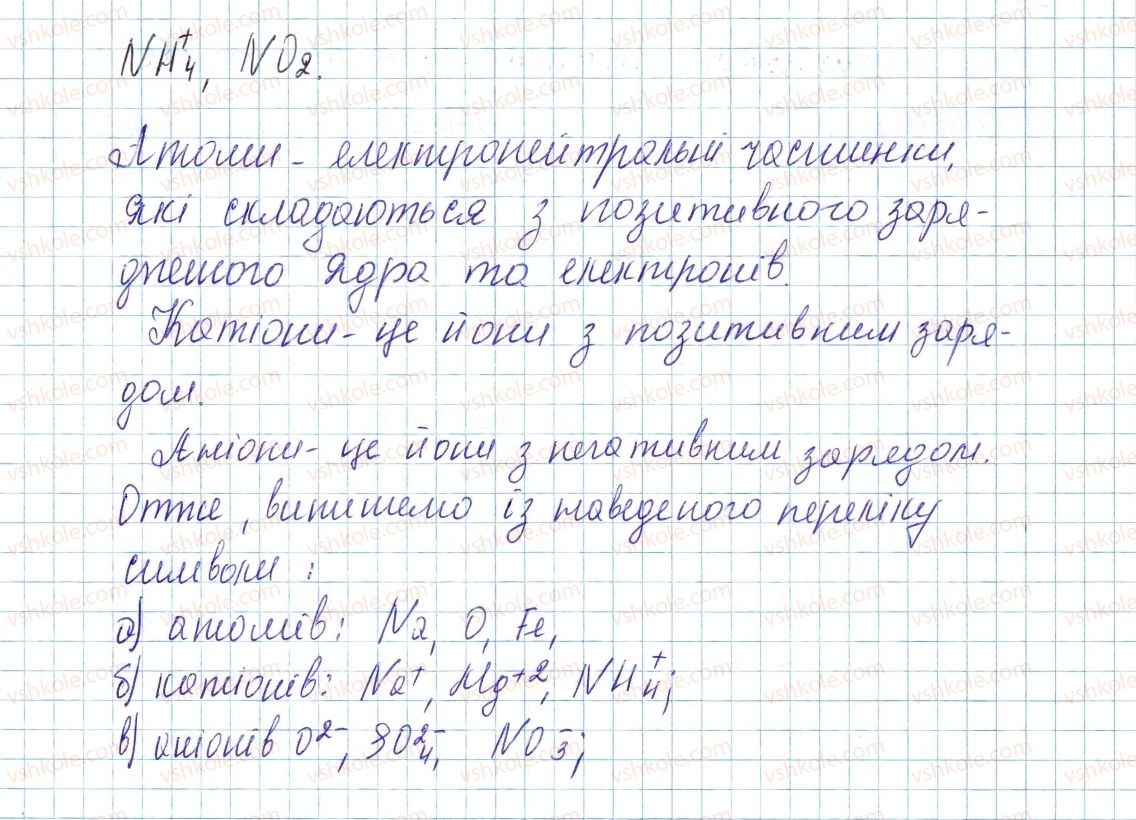 NH₄⁺, NO₂.
Атоми - електронейтральні частинки,
які складаються з позитивного заря-
дженого ядра та електронів.
Катіони - це йони з позитивним заря-
дом.
Аніони - це йони з негативним зарядом.
Отже, випишемо із наведеного переліку
символи :
а) атомів: Na, O, Fe,
б) катіонів: Na⁺, Mg⁺², NH₄⁺;
в) аніонів O²⁻, SO₄²⁻, NO₃⁻;